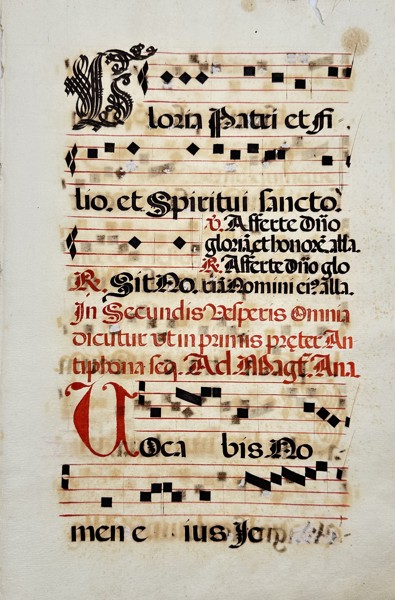 Gloria Patri et Fi
lio. et Spiritui sancto.
℣. Afferte Dño
gloriã et honorẽ. alla.
℟. Afferte Dño glo
℟. Sit No. riã Nomini ei9. alla.
In Secundis Vesperis Omnia
dicutur ut in primis pręter An
tiphona seq. Ad Magf. Ana.
Voca bis. No
men e ius Je